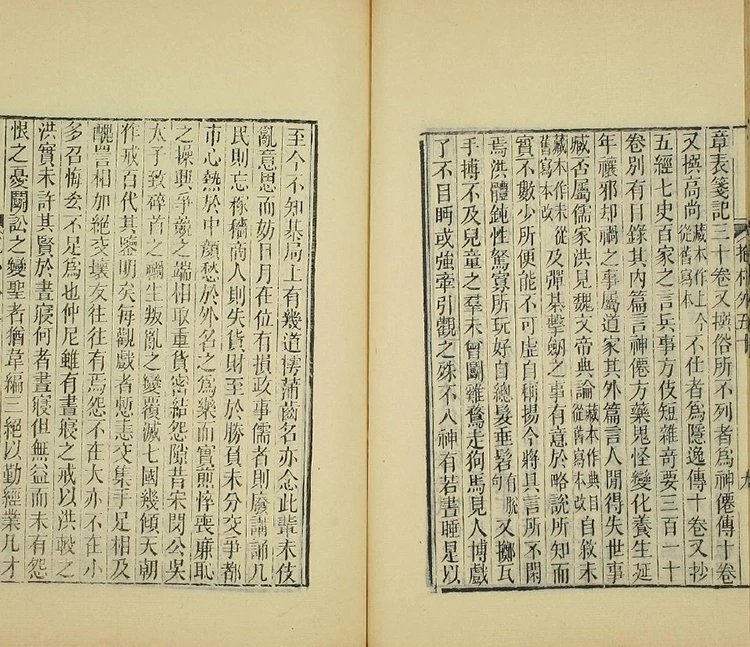 章表箋記三十卷又撰俗所不列者為神僊傳十卷
又撰高尚藏本作上今從舊寫本不仕者為隱逸傳十卷又抄
五經七史百家之言兵事方伎短雜奇要三百一十
卷別有目錄其內篇言神僊方藥鬼怪變化養生延
年禳邪却禍之事屬道家其外篇言人閒得失世事
臧否屬儒家洪見魏文帝典論藏本作典目從舊寫本改自敘未
藏本作末從舊寫本改及彈棊擊劒之事有意於略說所知而
實不數少所便能不可虛自稱揚今將具言所不閑
焉洪體鈍性駑寡所玩好自總髮垂髫有脫句又擲瓦
手搏不及兒童之羣未曾鬭雞鶩走狗馬見人博戲
了不目眄或強牽引觀之殊不入神有若晝睡是以
至今不知棊局上有幾道樗蒲齒名亦念此輩末伎
亂意思而妨日月在位有損政事儒者則廢講誦凡
民則忘稼穡商人則失貨財至於勝負未分交爭都
市心熱於中顏愁於外名之為樂而實煎悴喪廉恥
之操興爭競之端相取重貨密結怨隙昔宋閔公吳
太子致碎首之禍生叛亂之變覆滅七國幾傾天朝
作戒百代其鑒明矣每觀戲者慙恚交集手足相及
醜詈相加絕交壞友往往有焉怨不在大亦不在小
多召悔吝不足為也仲尼雖有晝寢之戒以洪較之
洪實未許其賢於晝寢何者晝寢但無益而未有怨
恨之憂鬭訟之變聖者猶韋編三絕以勤經業凡才